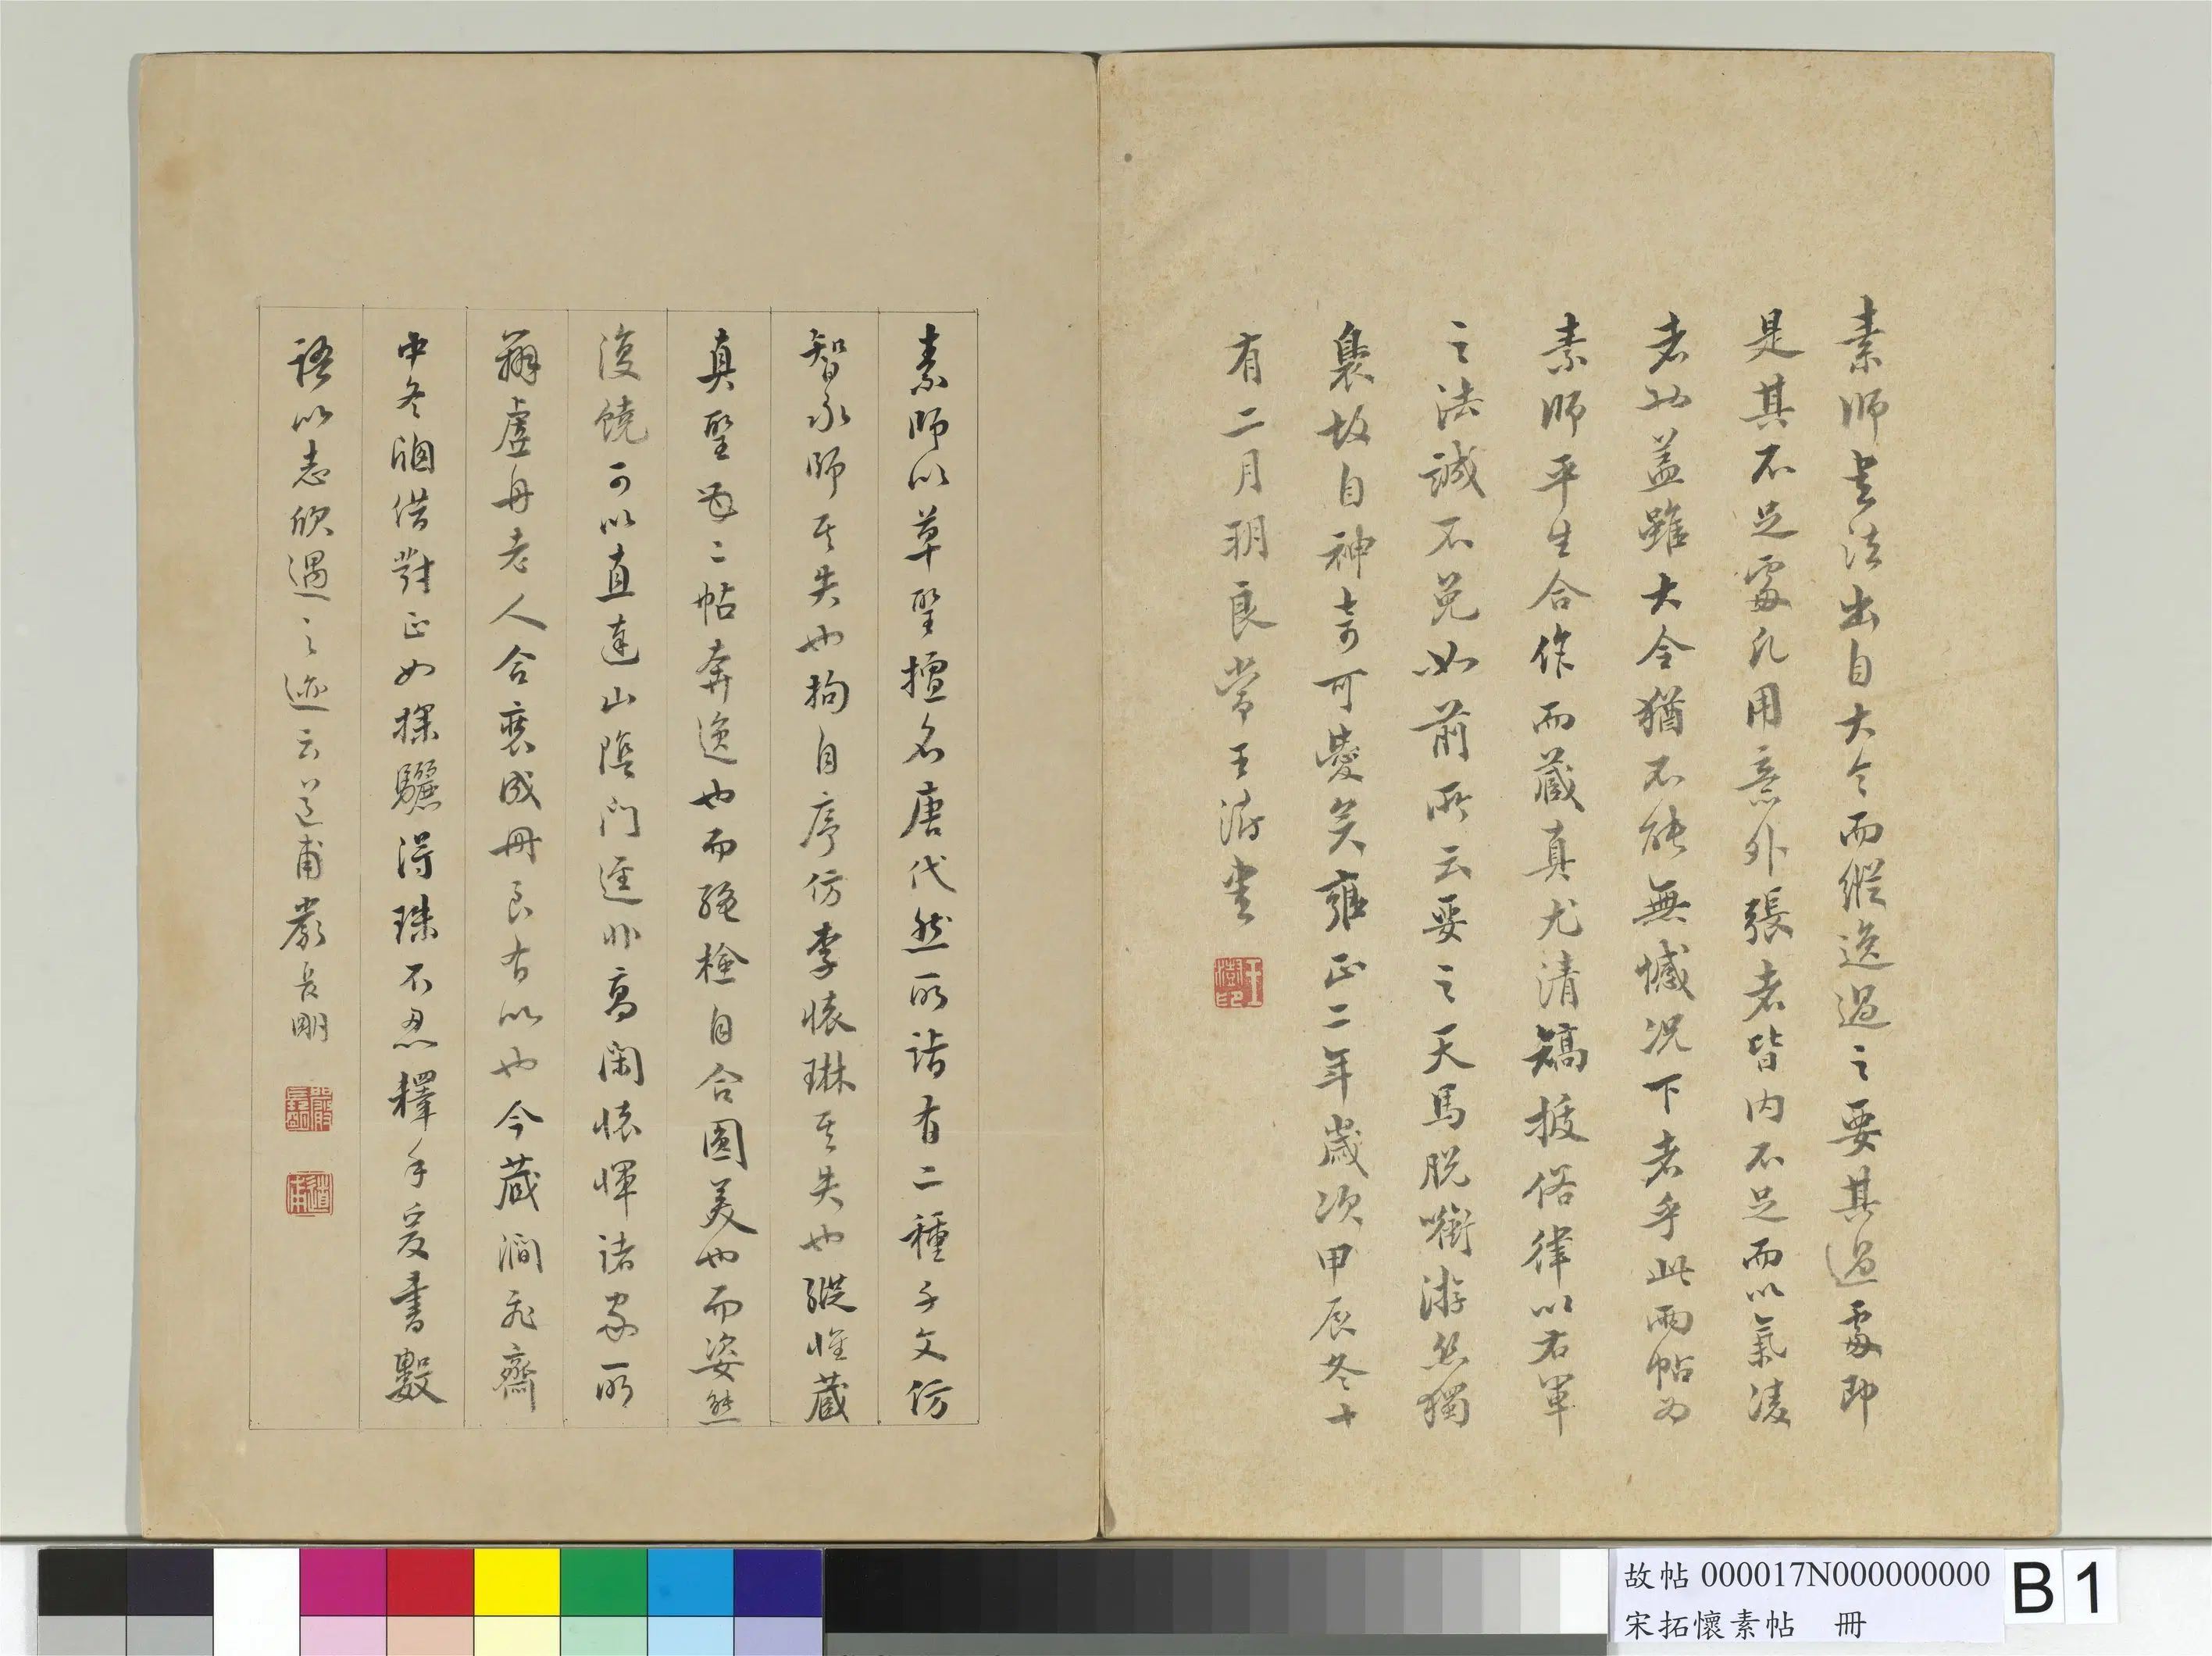 素師書法出自大令而縱逸過之要其過處即
是其不足處凡用意外張者皆內不足而以氣凌
者如蓋雖大令猶不能無憾況下者乎此兩帖為
素師平生合作而藏真尤清矯拔俗律以右軍
之法誠不免如前所云要之天馬脫銜游絲獨
裊故自神奇可愛矣雍正二年歲次甲辰冬十
有二月朔良常王澍書
王澍印
素師以草聖擅名唐代然所詣有二種千文仿
智永師其失也拘自序仿李懷琳其失也縱惟藏
真聖母二帖奔逸也而繩檢自合圓美也而姿態
復饒可以直達山陰門逕非高閑懷惲諸家所
翔虛舟老人合裝成冊良有以也今藏澗飛齋
中冬日借對正如探驪得珠不忍釋手爰書數
語以志欣遇之迹云道甫嚴長明
嚴長明
道甫
故帖 000017N000000000
宋拓懷素帖 冊
B 1